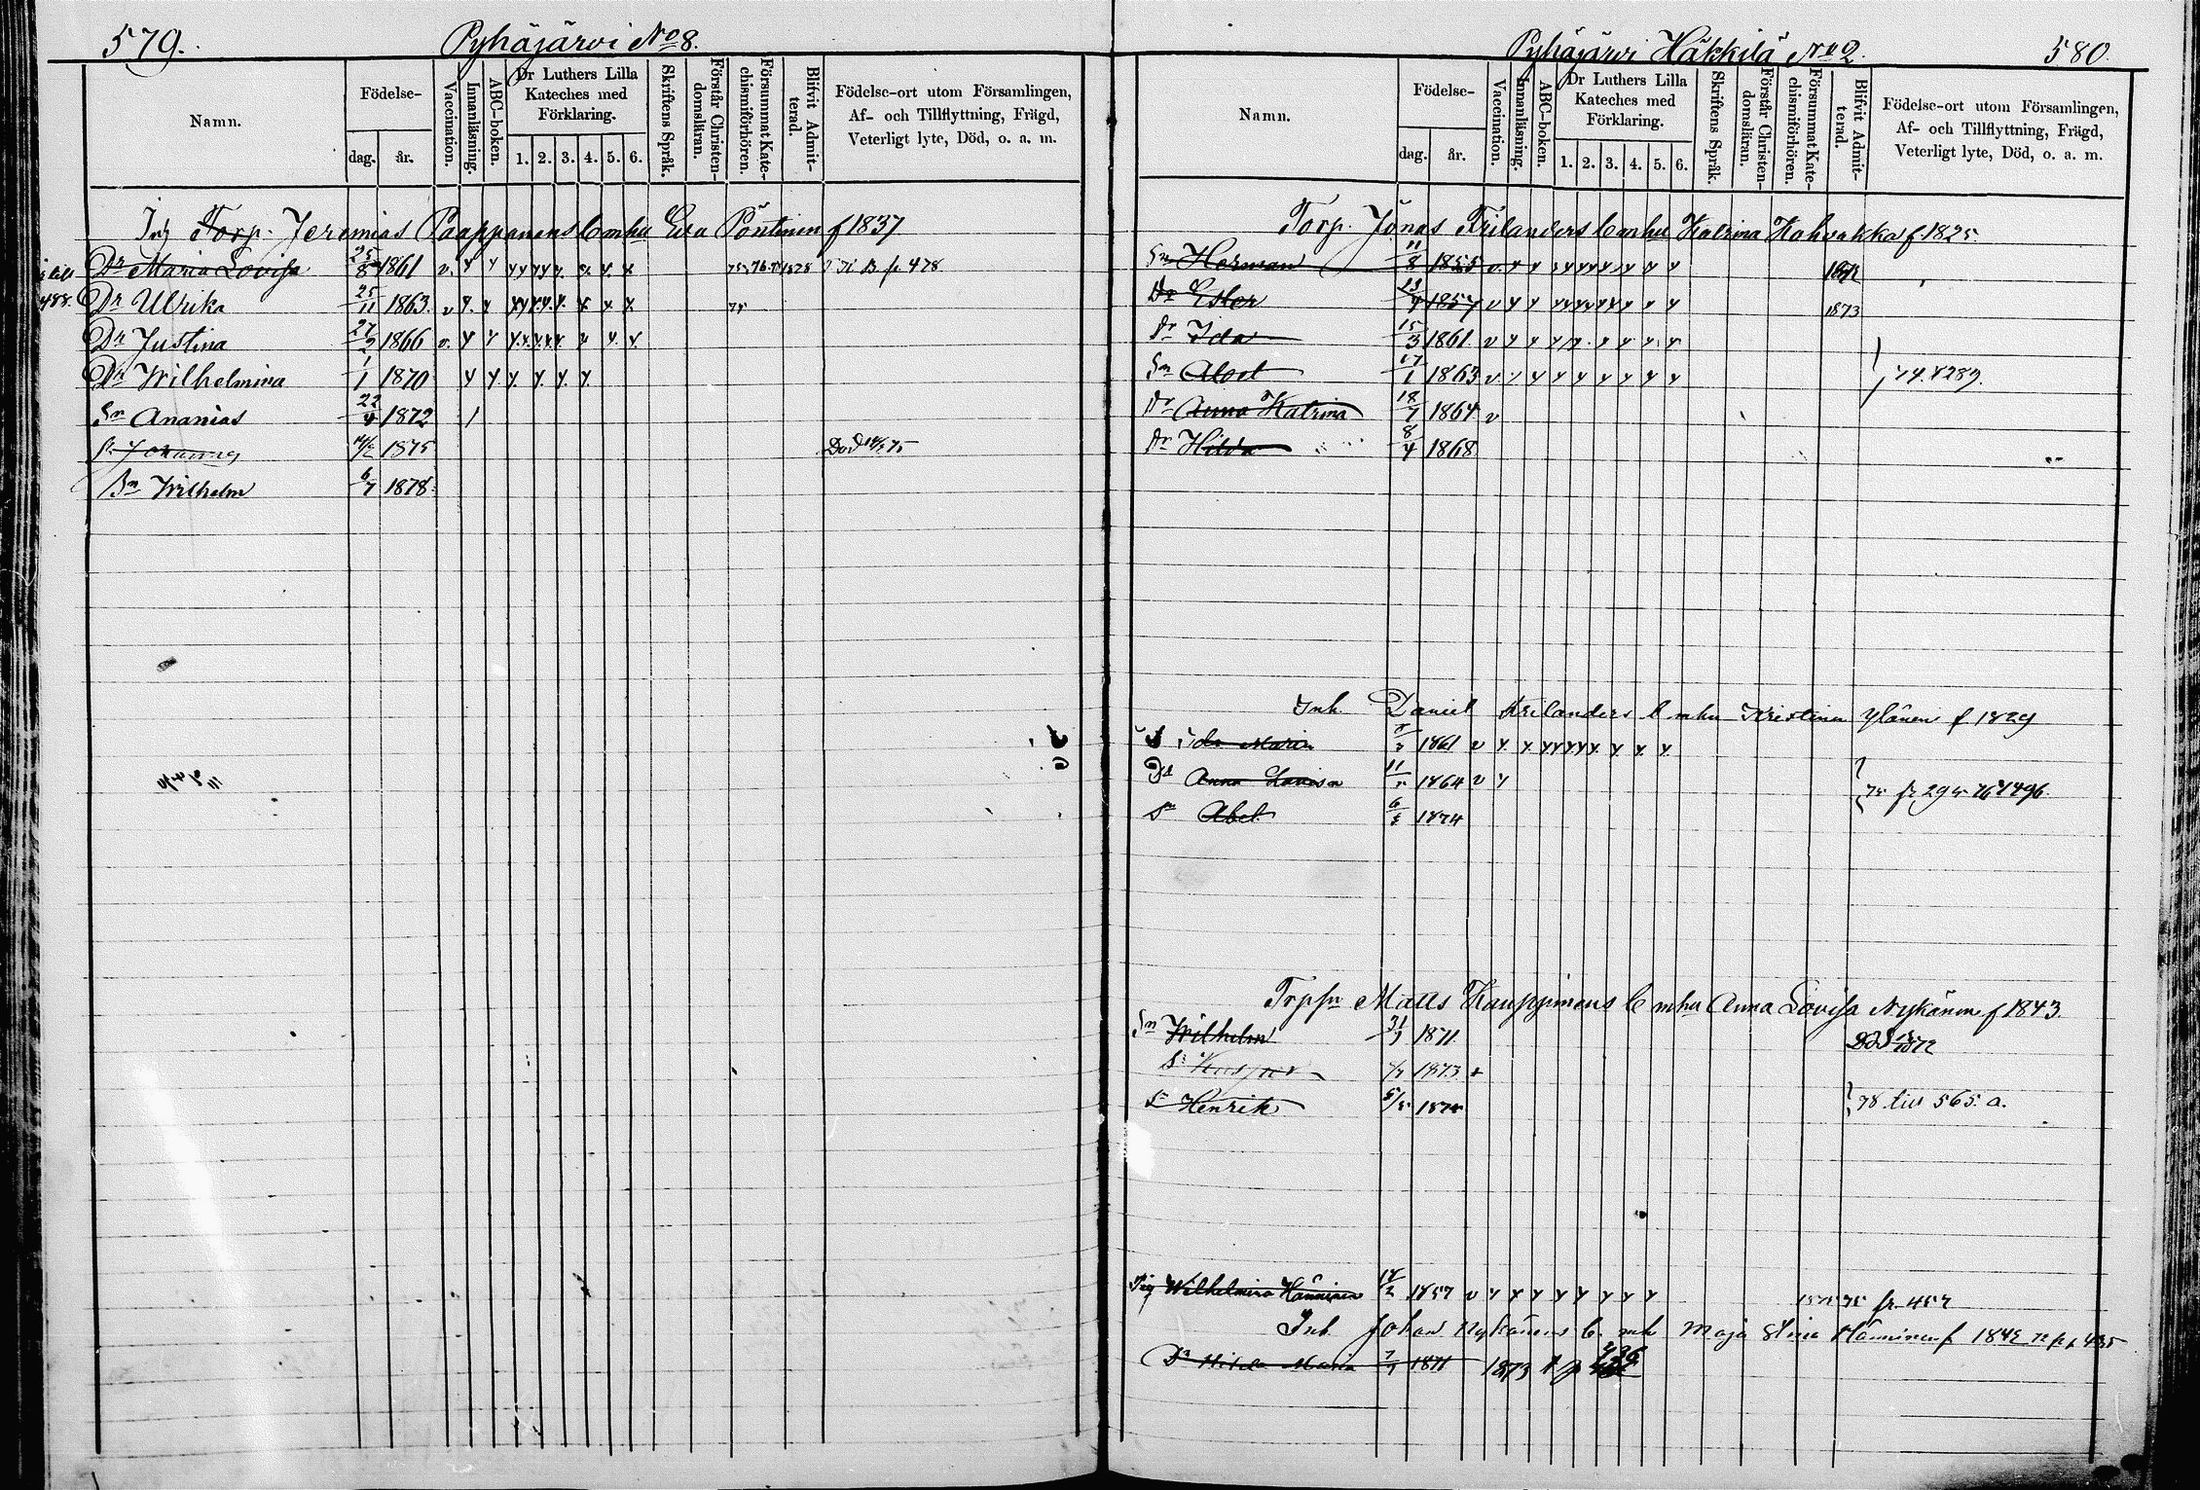 579.
Pyhäjärvi No 8.
Namn.
Födelse-
dag.
år.
Vaccination.
Innanläsning.
ABC-boken.
Dr Luthers Lilla Kateches med Förklaring.
1. 2. 3. 4. 5. 6.
Skriftens Språk.
Förstår Christendomsläran.
Försummat Katechismiförhören.
Blifvit Admitterad.
Födelse-ort utom Församlingen,
Af- och Tillflyttning, Frägd,
Veterligt lyte, Död, o. a. m.
Inh Torp. Jeremias Paappanens b mhu Eva Pöntinen f 1837
Dr Maria Lovisa 25/8 1861 v. 1878 p 478
488. Dr Ulrika 25/11 1863. v 75
Dr Justina 27/2 1866 v.
Dr Wilhelmina 1/1 1870
Sn Ananias 22/4 1872
1875 Död 75
Sn Wilhelm 6/7 1878
580.
Pyhäjärvi Häkkilä No 2.
Namn.
Födelse-
dag.
år.
Vaccination.
Innanläsning.
ABC-boken.
Dr Luthers Lilla Kateches med Förklaring.
1. 2. 3. 4. 5. 6.
Skriftens Språk.
Förstår Christendomsläran.
Försummat Katechismiförhören.
Blifvit Admitterad.
Födelse-ort utom Församlingen,
Af- och Tillflyttning, Frägd,
Veterligt lyte, Död, o. a. m.
Torp. Jonas Frilanders b mhu Katrina Kohvakka f 1825.
Sn Herman 11/8 1855 v 1872
Dr Ester 1857 v 1873
Dr Ida 15/3 1861 v
Sn 17/1 1863 v 74. 289.
Dr Anna Katrina 18/7 1864 v
Dr Hilda 8/4 1868
Inh. Daniel Frilanders b mhu Kristina Ylönen f 1829
Ida Maria 1861 v
Anna Lovisa 1864 v fr 29 76 496.
Sn Abel 1874
Trpsn Matts Kauppinens b mhu Anna Lovisa Nykänen f 1843.
Sn Wilhelm 1871. Död 1872
1873
Sn Henrik 78 till 565. a.
Pig Wilhelmina Hänninen 1857 v 75 fr 457
Inh. Johan Nykänens b. mh Maja Stina Hänninen f 184
Dr Hilda Maria 1871 1873 p